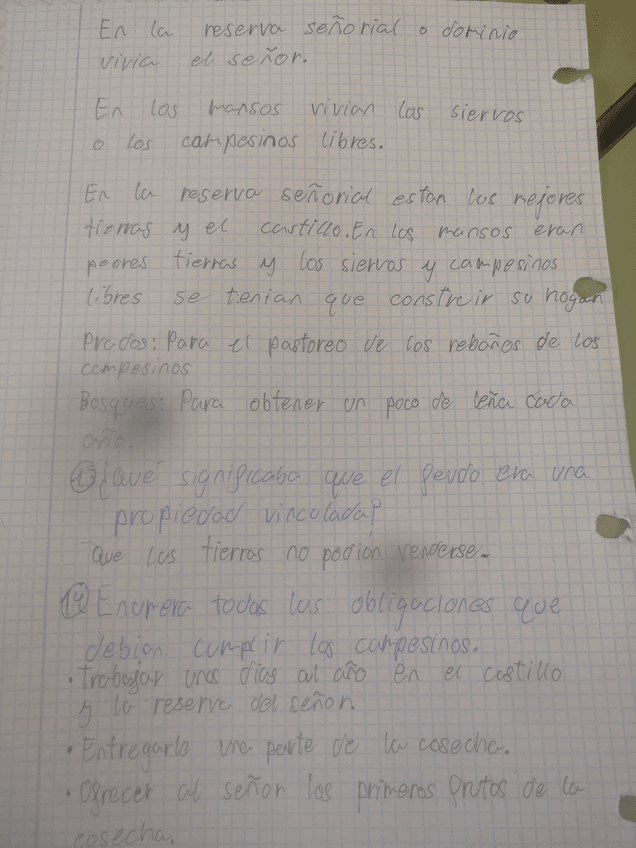 En la reserva señorial o dominio
vivia el señor.
En los mansos vivian los siervos
o los campesinos libres.
En la reserva señorial estan las mejores
tierras y el castillo. En los mansos eran
peores tierras y los siervos y campesinos
libres se tenian que constrcir su hogar
Prados: Para el pastoreo de los rebaños de los
campesinos
Bosques: Para obtener un poco de leña cada
año.
13 ¿Qué significaba que el feudo era una
propiedad vinculada?
Que las tierras no podian venderse.
14 Enumera todas las obligaciones que
debian cumplir los campesinos.
• Trabajar unos dias al año en el castillo
y la reserva del señor.
• Entregarle una parte de la cosecha.
• Ofrecer al señor los primeros frutos de la
cosecha.